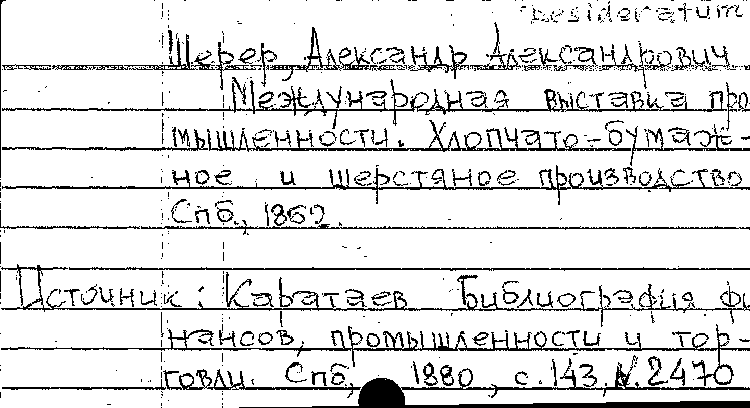 desideratum
Шерер, Александр Александрович
Международная выставка про
мышленности. Хлопчато-бумаж-
ное и шерстяное производство
Спб., 1862.
Источник: Каратаев Библиография фи
нансов, промышленности и тор-
говли. Спб, 1880, с. 143, N. 2470